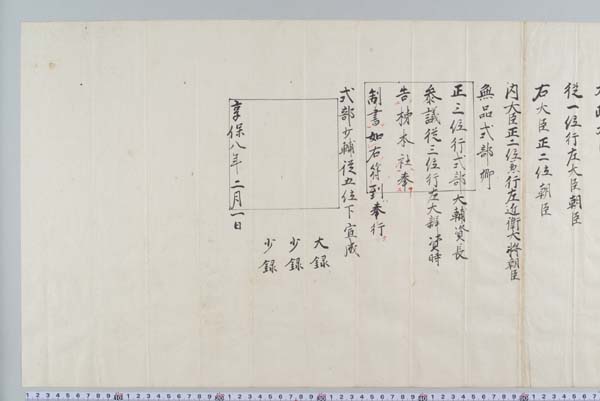 從一位行左大臣朝臣
右大臣正二位朝臣
内大臣正二位兼行左近衛大將朝臣
無品式部卿
正三位行式部大輔資長
參議從三位行左大辨資時
告柿本社奉
制書如右符到奉行
式部少輔從五位下宣成
大録
少録
少録
享保八年二月一日